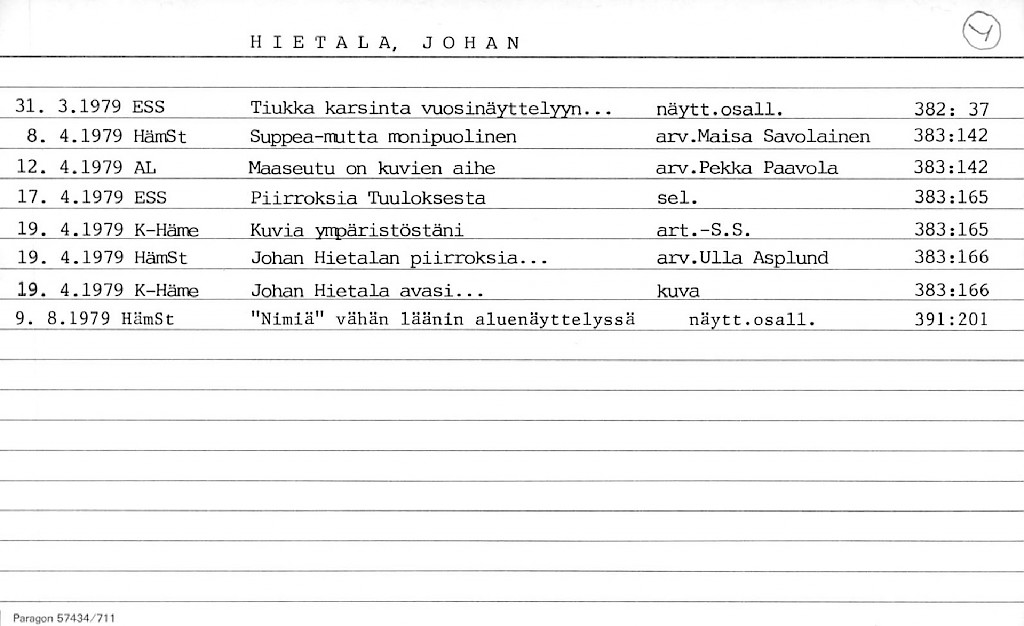 HIETALA, JOHAN
31. 3.1979 ESS Tiukka karsinta vuosinäyttelyyn... näytt.osall. 382: 37
8. 4.1979 HämSt Suppea-mutta monipuolinen arv.Maisa Savolainen 383:142
12. 4.1979 AL Maaseutu on kuvien aihe arv.Pekka Paavola 383:142
17. 4.1979 ESS Piirroksia Tuuloksesta sel. 383:165
19. 4.1979 K-Häme Kuvia ympäristöstäni art.-S.S. 383:165
19. 4.1979 HämSt Johan Hietalan piirroksia... arv.Ulla Asplund 383:166
19. 4.1979 K-Häme Johan Hietala avasi... kuva 383:166
9. 8.1979 HämSt "Nimiä" vähän läänin aluenäyttelyssä näytt.osall. 391:201
Paragon 57434/711